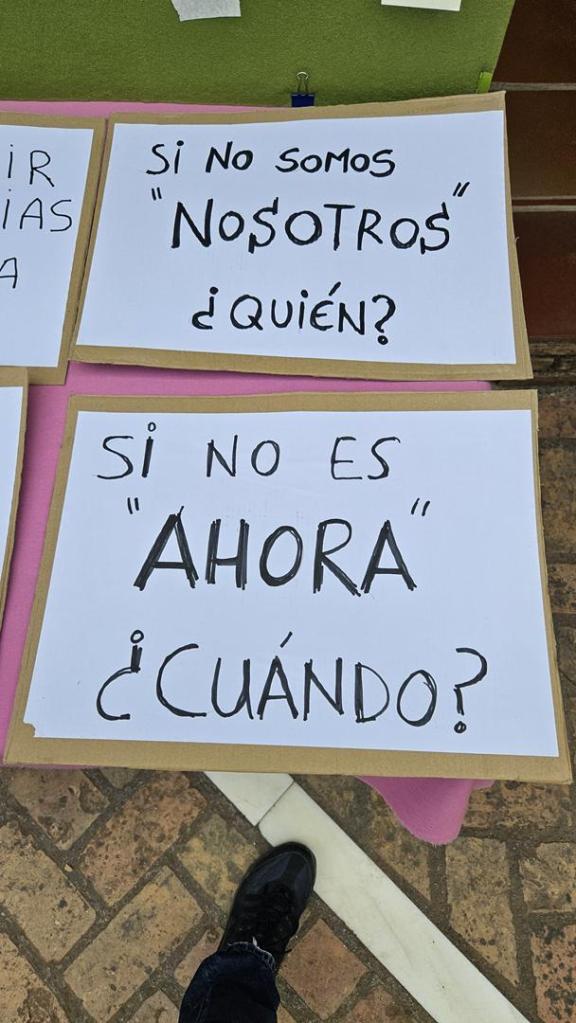 SI NO SOMOS
"NOSOTROS"
¿QUIÉN?
SI NO ES
"AHORA"
¿CUÁNDO?